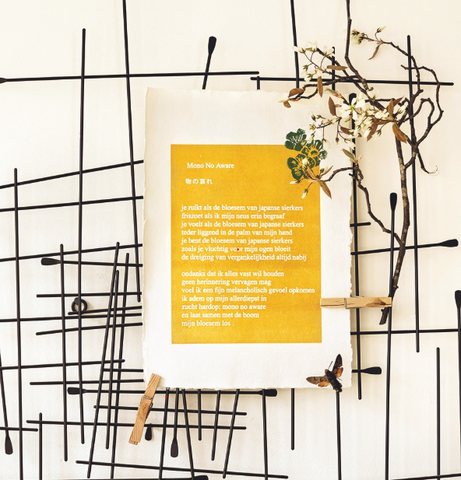 Mono No Aware
物の哀れ
je ruikt als de bloesem van japanse sierkers
frisroze als ik mijn neus erin begraaf
je voelt als de bloesem van japanse sierkers
teder liggend in de palm van mijn hand
je bent de bloesem van japanse sierkers
zoals je vluchtig voor mijn ogen bloeit
de dreiging van vergankelijkheid altijd nabij
ondanks dat ik alles vast wil houden
geen herinnering vervagen mag
voel ik een fijn melancholisch gevoel opkomen
ik adem op mijn allerdiepst in
zucht hardop: mono no aware
en laat samen met de boom
mijn bloesem los